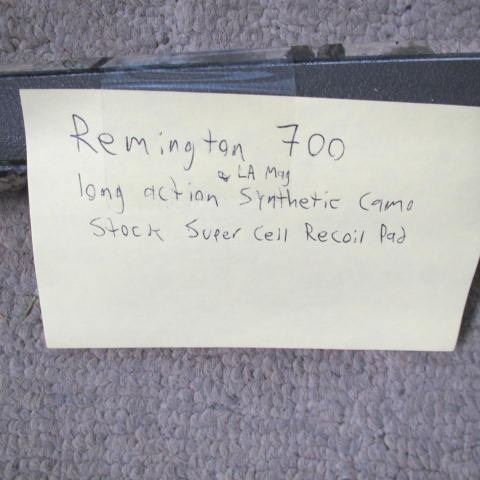 Remington 700
& LA Mag
long action Synthetic Camo
Stock Super Cell Recoil Pad